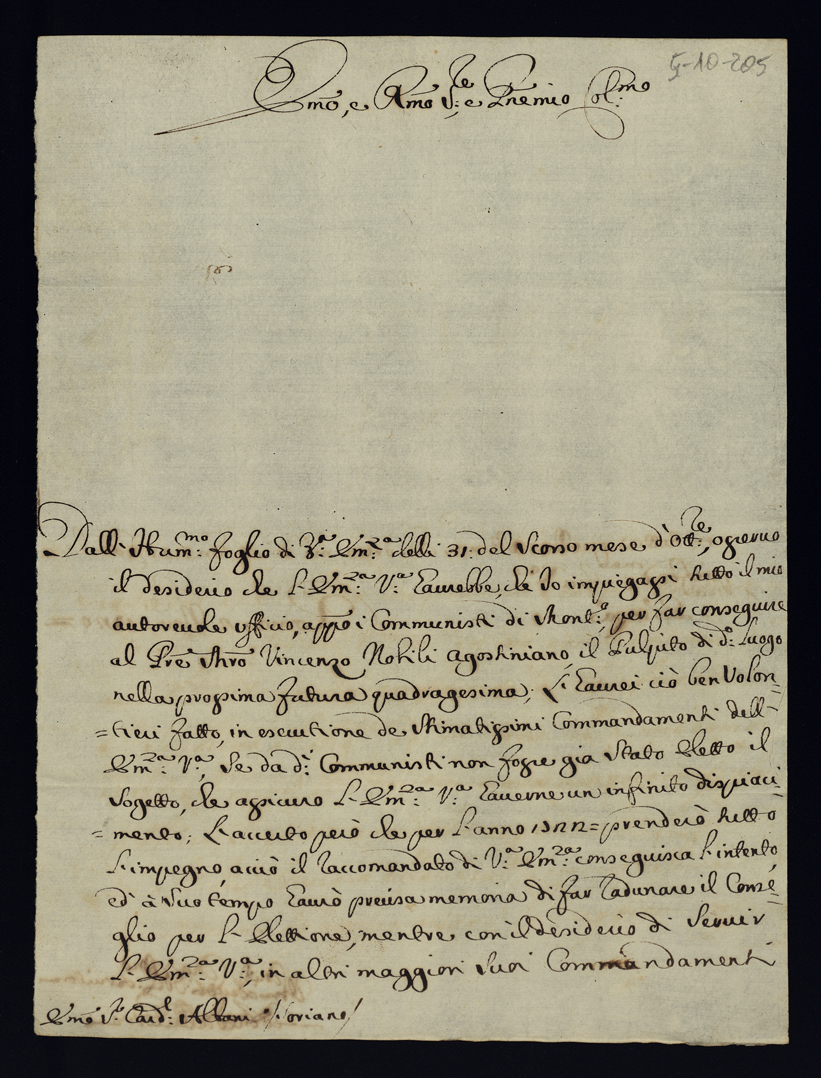 5-10-205
Emo, e Rmo Sre e Pnemio Colmo
Dall' Hum.mo foglio di V.a Em.za delli 31: del scorso mese d'Ott.re, osservo
il desiderio che l'Em.za V.a haurebbe, ch'Io impiegassi tutto il mio
autorevole ufficio, appo i Communisti di Mont.e, per far conseguire
al Pre Mro Vincenzo Nobili agostiniano, il Pulpito di d.o luogo
nella prossima futura quadragesima; L'haurei ciò ben volon-
=tieri fatto, in esecutione de stimatissimi Commandamenti dell'
Em.za V.a, se da d.i Communisti non fosse già stato eletto il
sogetto, che assicuro l'Em.za V.a haverne un infinito dispiaci-
=mento; L'accerto però che per l'anno 1722= prenderò tutto
l'impegno, acciò il raccomandato di V.a Em.za conseguisca l'intento,
ed à suo tempo haurò precisa memoria di far radunare il Conse-
glio per l'Elettione, mentre con il desiderio di servir
l'Em.za V.a, in altri maggiori suoi Commandamenti
Emo Sr Card.l Albani /Soriano/